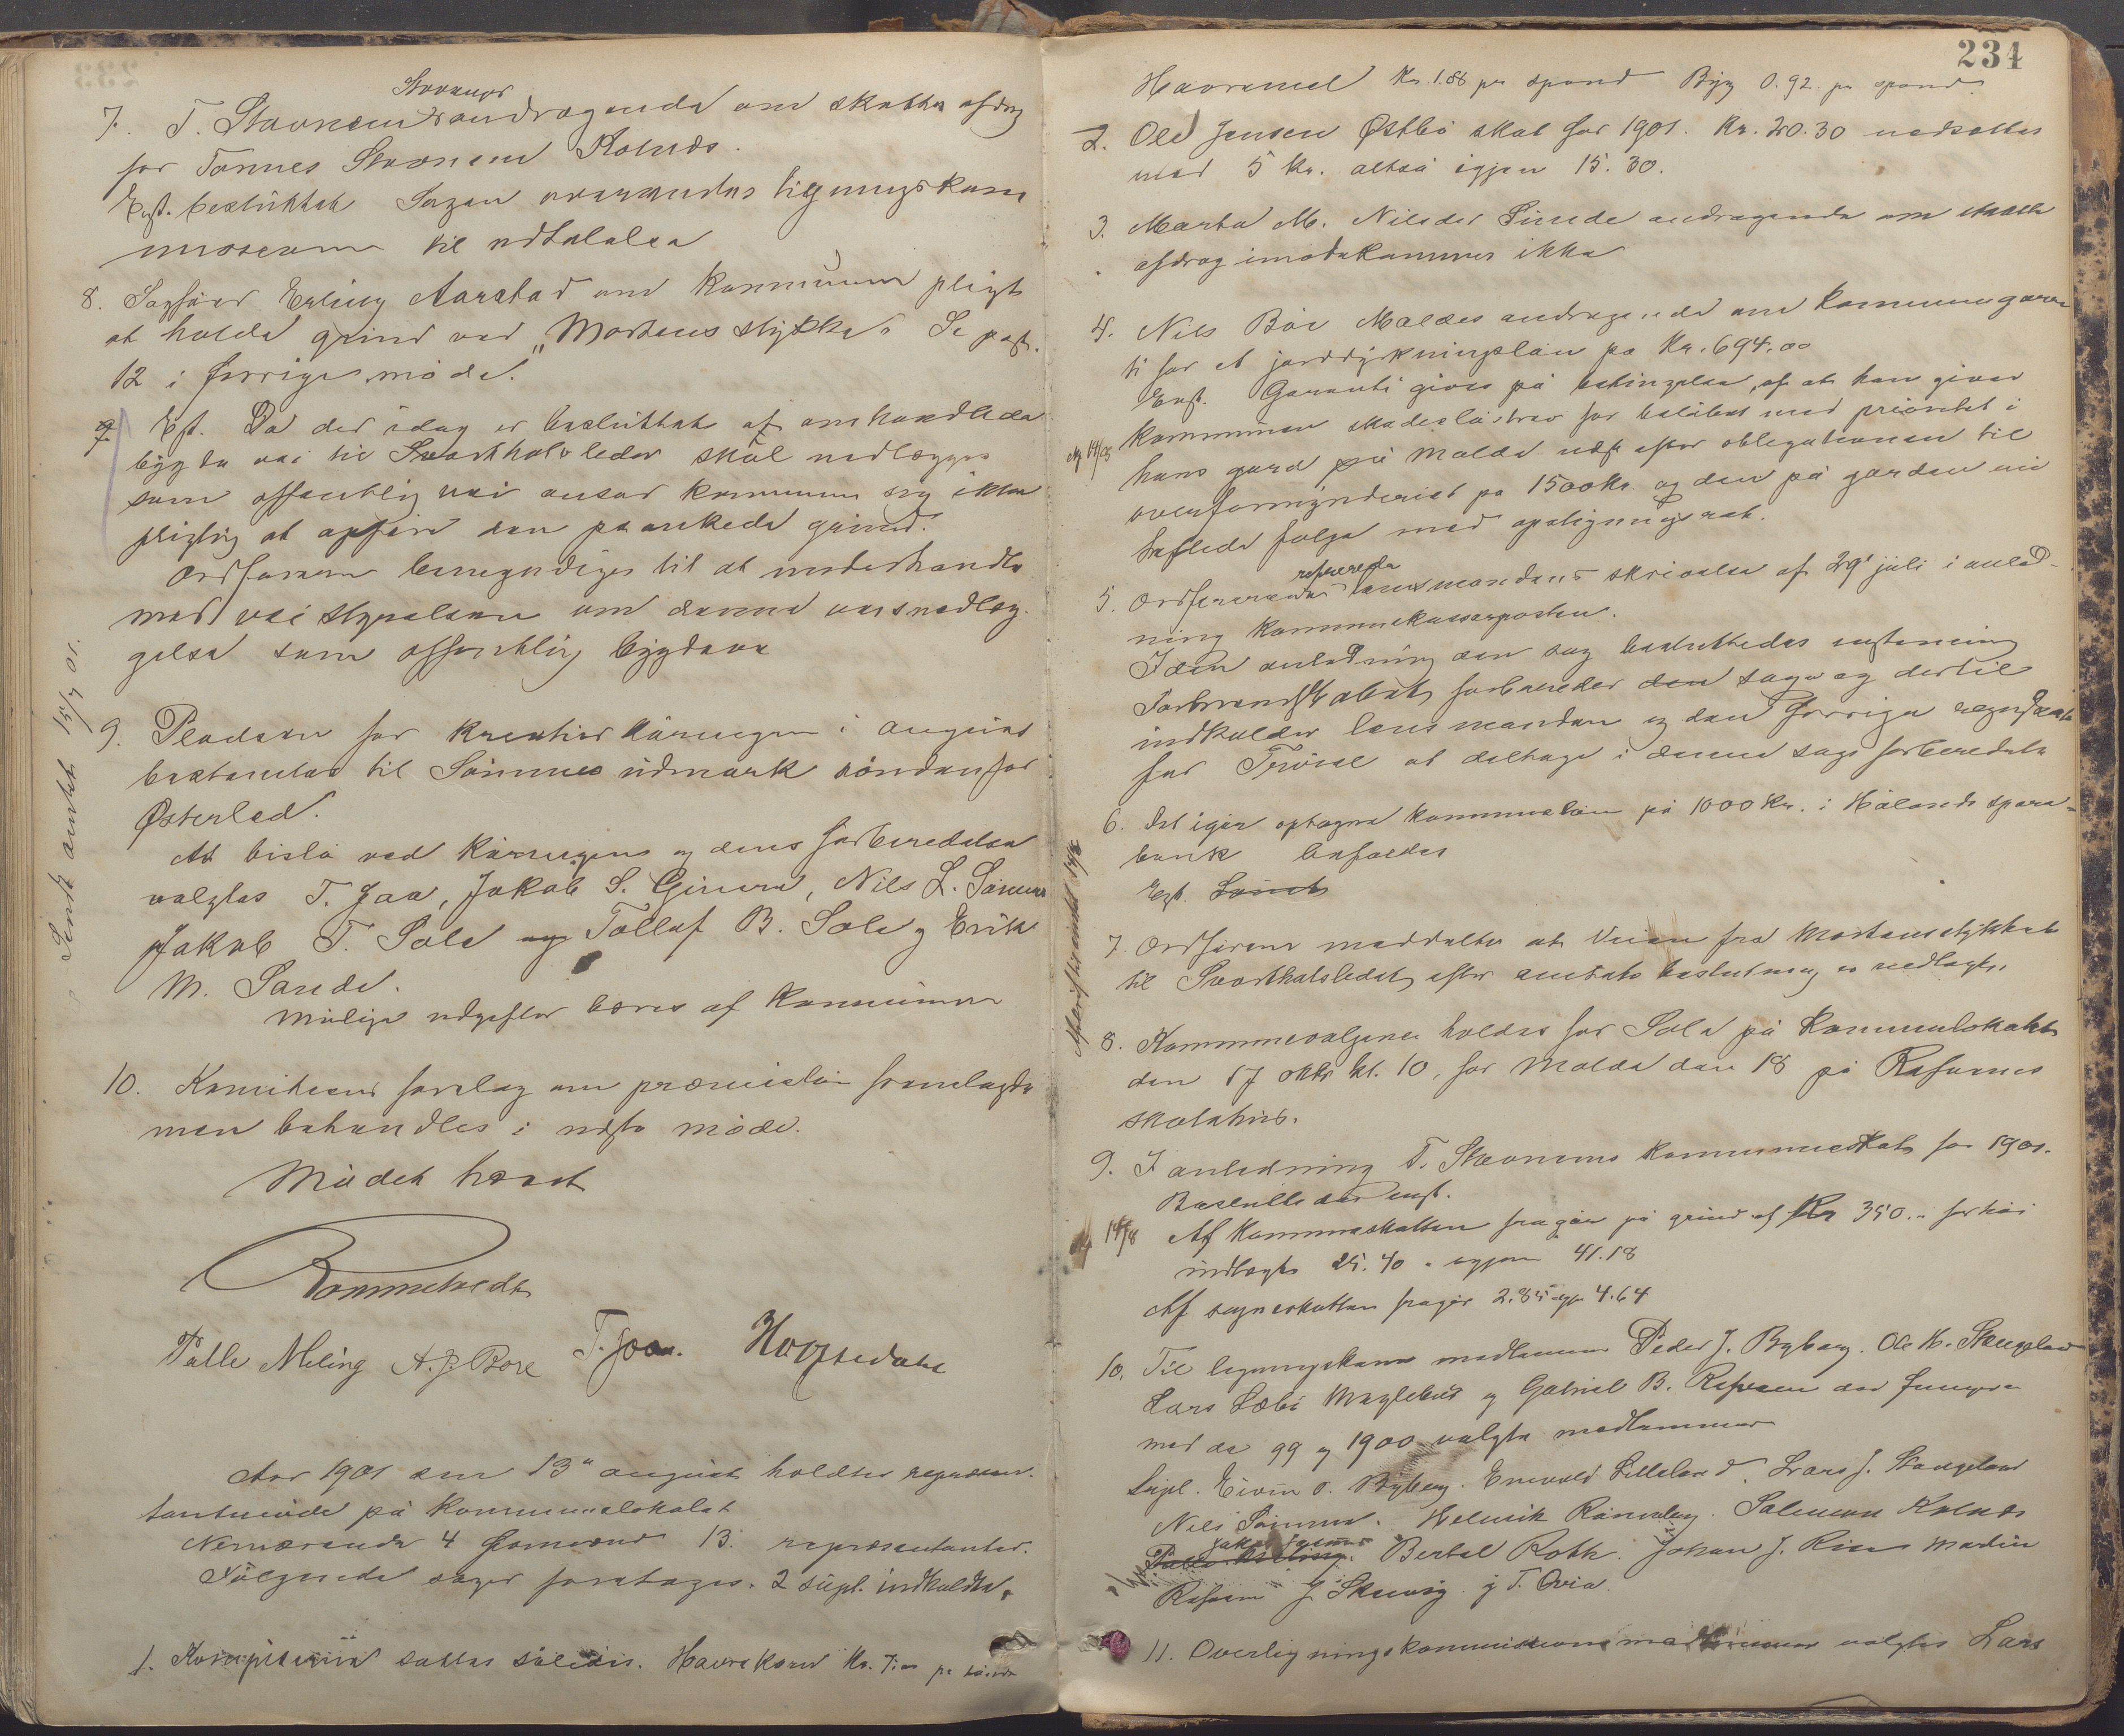 7. T. Stavnem Stavanger andragende om skatteafdrag
for Tønnes Stavnem Kolnæs.
Enst. besluttet Sagen oversendes ligningskom
missionen til udtalelse
8. Sagfører Erling Aarstad om kommunens pligt
at holde grind ved „Mortens stykke“ Se post.
12 i forrige møde.
Eft. Da det idag er besluttet at omhandlede
bygdevei til Svarthols ledet skal nedlægges
som offentlig vei anser kommunen sig ikke
pligtig at opføre den paankede grind.
Ordføreren bemyndiges til at underhandle
med veistyrelsen om denne veis nedlæg-
gelse som offentlig bygdevei
Sendt amtet 15/7 01.
9. Pladsen for kreaturkåringen i august
bestemtes til Sømmes udmark søndenfor
Østerled.
At bistå ved kåringen og dens forberedelse
valgtes T. Joa, Jakob S. Gimre, Nils L. Sømme
Jakob T. Sola og Tollef B. Sola og Erik
M. Sande.
Mulige udgifter bæres af kommunen
10. Komiteens forslag om præmielån fremlagdes
men behandles i næste møde.
Mødet hævet
Rommetvedt
Palle Meling A. J. Bore T. Joa. Hogstedal
Aar 1901 den 13de august holdtes repræsen-
tantmøde på kommunelokalet
Nærværende 4 formænd 13. repræsentanter.
Følgende sager foretages. 2 supl. indkaldte.
1. Kornpriserne sattes således. Havrekorn Kr. 7.00 pr tønde
234
Havremel Kr. 1.86 pr spand Byg 0.92 pr spand.
2. Ole Jensen Østbø skat for 1901. Kr. 20.30 nedsættes
med 5 kr. altså igjen 15.30.
3. Marta M. Nilsdtr Sunde andragende om skatte
afdrag imødekommes ikke
4. Nils Bøe Maldes andragende om kommunegaran
ti for et jorddyrkningslån på Kr. 694.00
Enst. Garanti gives på betingelse af at han giver
kommunen skadesløsbrev for beløbet med prioritet i
hans gård på Malde næst efter obligationen til
overformynderiet på 1500 kr. og den på gården
heftede følge med opsigningsret.
5. Ordføreren refererede lensmandens skrivelse af 29' juli i anled-
ning kommunekasserposten.
I den anledning den sag besluttedes enstemmig
Formandskabet forbereder den sagen og dertil
indkalder lensmanden og den forrige regnskabs
før Trövel at deltage i denne sags forberedelse
6. Det igår optagne kommunelån på 1000 Kr. i Hålands spare-
bank
Egt.
7. Ordføreren meddelte at Veien fra Mortensstykket
til Svartholsledet efter amtets beslutning er nedlagt.
8. Kommunevalgene holdes for Sola på kommunelokalet
den 17 oktr kl. 10, for Malde den 18 på Refsnes
skolehus.
9. I anledning T. Stavnems kommuneskat for 1901.
Besluttedes enst.
14/8 Af kommuneskatten fragår på grund af Kr 350.- for høi
indtægt 25.40 - igjen 41.18
Af sogneskatten fragår 2.85 igjen 4.64
10. Til ligningskom medlemmer Peder J. Byberg. Ole K. Stangeland
Lars Sæbø Myklebust og Gabriel B. Refsnes der fungere
med de 99 og 1900 valgte medlemmer
Supl. Eivin O. Byberg. Enevald Lilleland. Lars J. Stangeland
Nils Sømme. Helmik Rånaberg. Salomon Kolnes
Jakob Sømme Bertel Roth. Johan J. Risa Martin
Refsnes J. Skeivig og T. Ovia.
11. Overligningskommissionsmedlemmer valgtes Lars